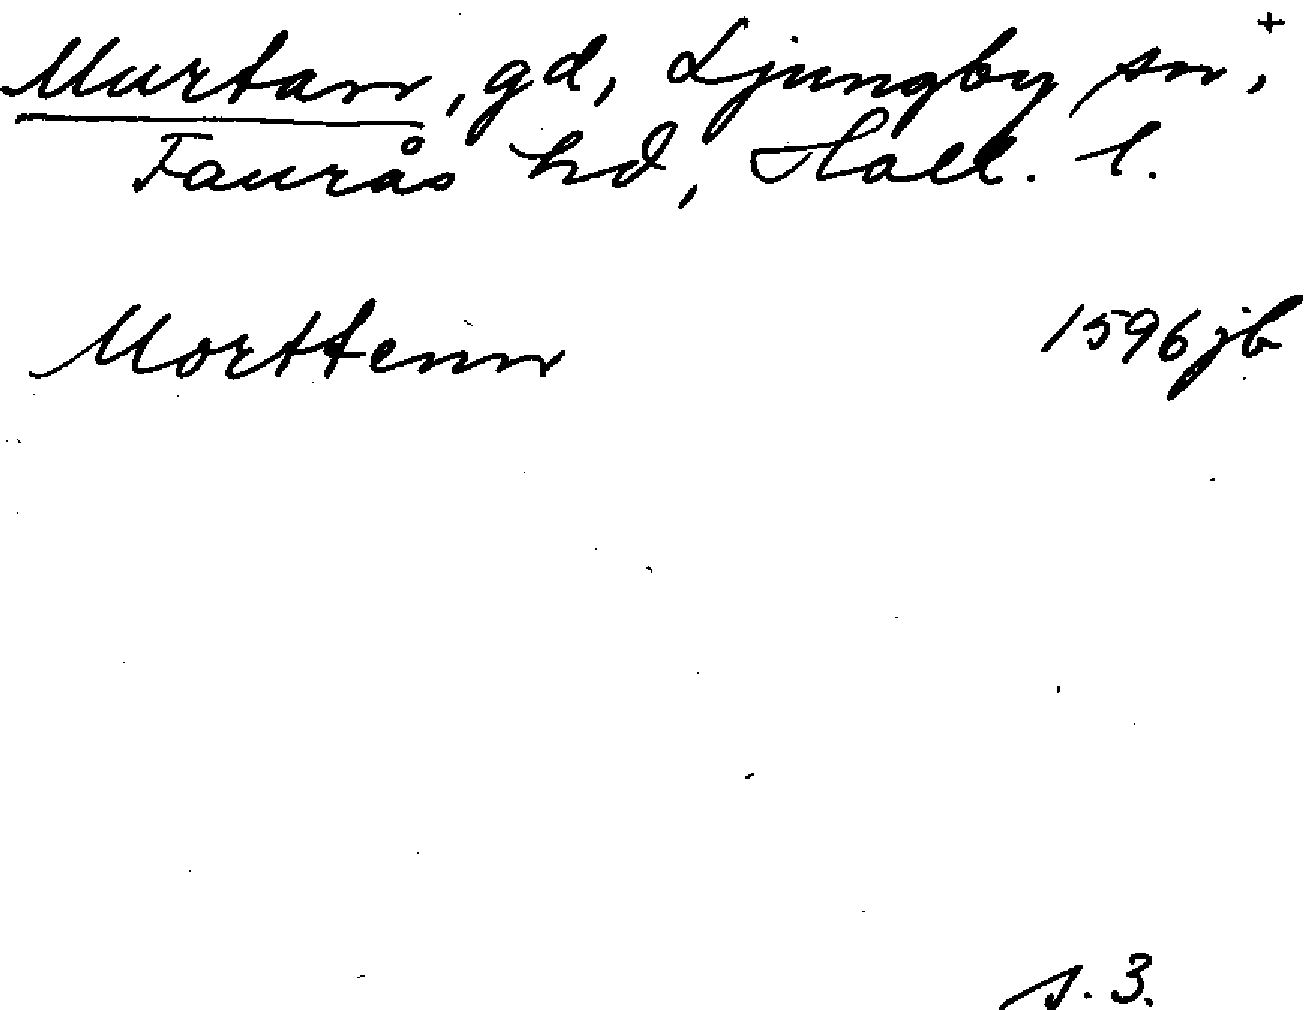 Murtan, gd, Ljungby sn, +
Faurås hd, Hall. l.
Morttenn 1596 jb
s. 3.